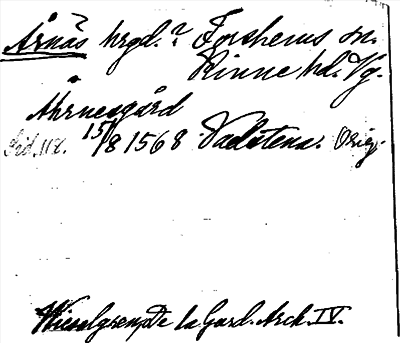 Årnäs hrgd.? Forshems sn.
Kinne hd. Vg.
Ahrnesgård
15/8 1568 Vadstena. Orig.
Wieselgren De la Gard. Arch. IV.